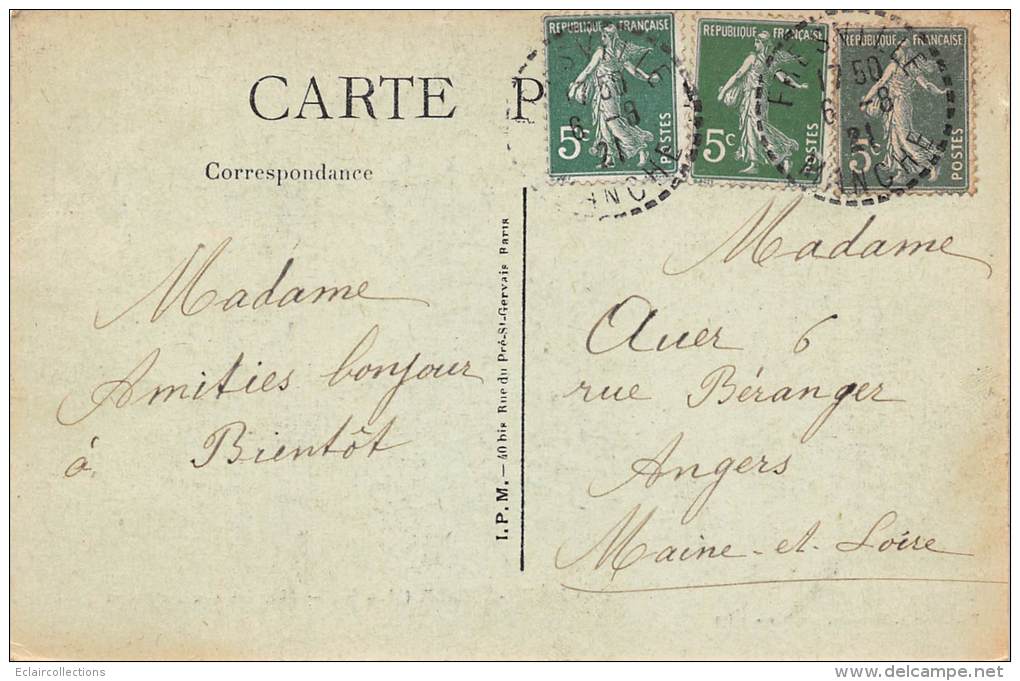 CARTE P
RÉPUBLIQUE FRANÇAISE
5c
POSTES
RÉPUBLIQUE FRANÇAISE
5c
POSTES
RÉPUBLIQUE FRANÇAISE
5c
POSTES
SVILLE
6 -8
21
NCHE
FRESVILLE
17 50
6 -8
21
MANCHE
Correspondance
Madame
Amitiés bonjour
à Bientôt
I.P.M. — 40 bis Rue du Pré-St-Gervais Paris
Madame
Auer 6
rue Béranger
Angers
Maine-et-Loire
Eclaircollections
delcampe.net